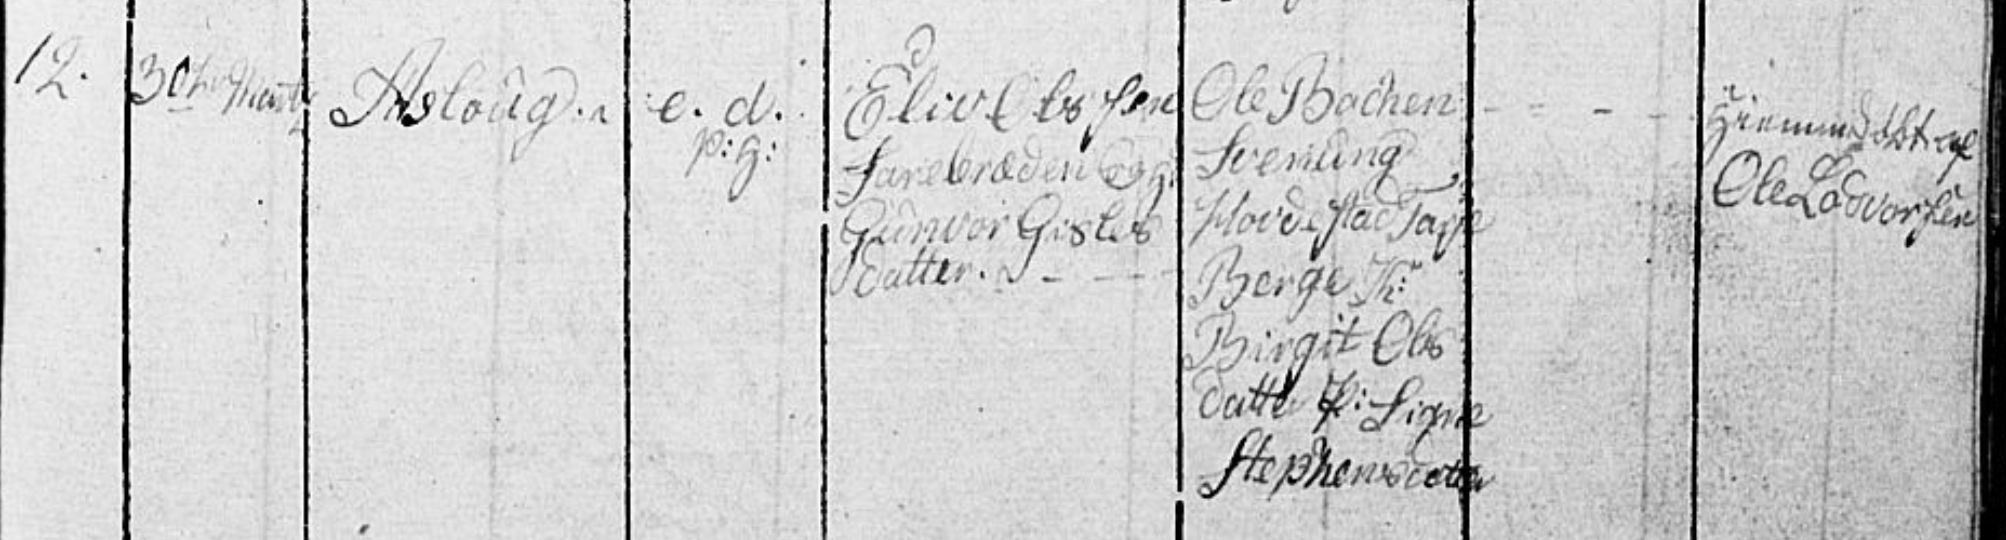 12.
30te Martz
Asloug.
e. d.
p: g:
Eliv Ols sen
Farebraeden Og
Gunvor Gisles
datter.
Ole Bachen
Svenung
Hovdestad Tarje
Berge Th:
Birgit Ols
datter P: Signe
Stephensdatter
Hiemmedøbt af
Ole Lodvorsen